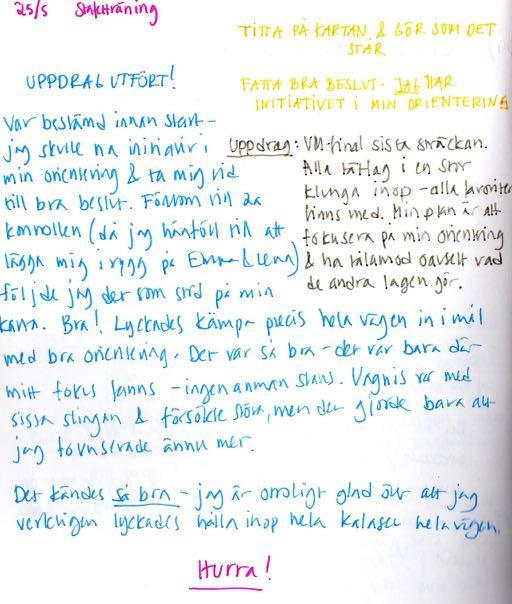 25/5 Stafettträning
TITTA PÅ KARTAN & GÖR SOM DET
STÅR
FATTA BRA BESLUT - JAG TAR
INITIATIVET I MIN ORIENTERING
UPPDRAG UTFÖRT!
Uppdrag: VM-final sista sträckan.
Alla tätlag i en stor
klunga ihop - alla favoriter
finns med. Min plan är att
fokusera på min orientering
& ha tålamod oavsett vad
de andra lagen gör.
Var bestämd innan start -
jag skulle ha initiativ i
min orientering & ta mig tid
till bra beslut. Förutom till 2a
kontrollen (då jag hänföll till att
lägga mig i rygg på Emma & Lena)
följde jag det som stod på min
karta. Bra! Lyckades kämpa precis hela vägen in i mål
med bra orientering. Det var så bra - det var bara där
mitt fokus fanns - ingen annan stans. Vagnis var med
sista slingan & försökte störa, men det gjorde bara att
jag fokuserade ännu mer.
Det kändes så bra - jag är otroligt glad över att jag
verkligen lyckades hålla ihop hela kalaset hela vägen.
Hurra!